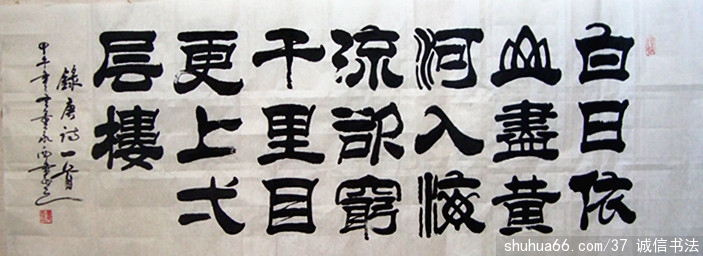 白日依
山盡黄
河入海
流欲窮
千里目
更上弌
层樓
錄唐诗一首
甲午年
shuhua66.com/37 诚信书法